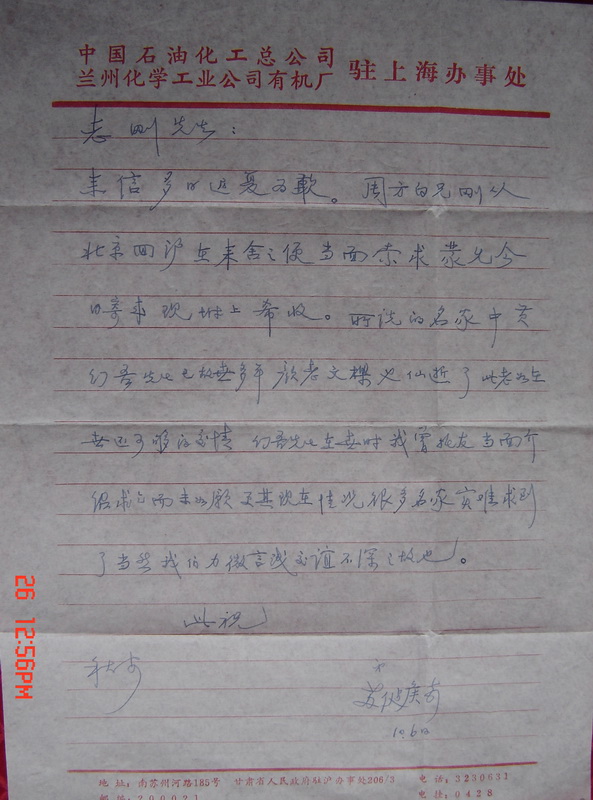 中国石油化工总公司
兰州化学工业公司有机厂 驻上海办事处
志刚先生：
来信多日迟复为歉。周方白兄刚从
北京回沪在来舍之便当面索求蒙允今
寄来现附上希收。所说的名家中黄
幻吾先生已故世多年 颜老文樑也仙逝了 此老如在
世还可够的交情 幻吾先生在世时我曾托友当面介
绍求之而未如愿 更其现在情况很多名家实难求到
了当然我们力微言浅交谊不深之故也。
此祝
秋安
10.6日
地址：南苏州河路185号 甘肃省人民政府驻沪办事处206/3 电话：3230631
邮编：200021 电挂：0428
26 12:56PM